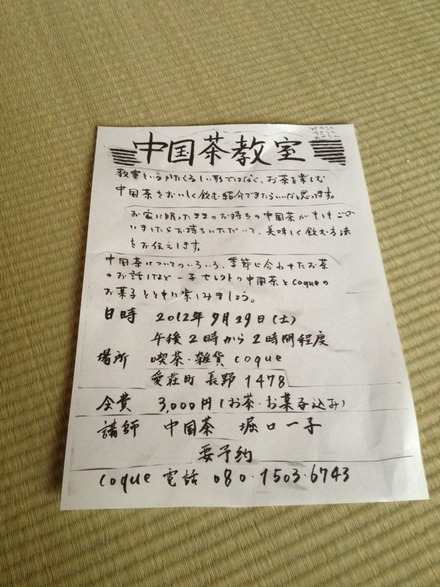 中国茶教室
教室というかたくるしい形ではなく、お茶を楽しむ
中国茶をおいしく飲む紹介できたらいいなと思います。
お家に眠ったままのお持ちの中国茶がもしござ
いましたらお持ちいただいて、美味しく飲む方法
をお伝えします。
中国茶についてのいろいろ、季節に合わせたお茶
のお話しなど 一子セレクトの中国茶とcoqueの
お菓子とともに楽しみましょう。
日時 2012年9月29日(土)
午後2時から2時間程度
場所 喫茶・雑貨 coque
愛荘町 長野 1478
会費 3,000円(お茶・お菓子込み)
講師 中国茶 堀口一子
要予約
coque 電話 080・1503・6743